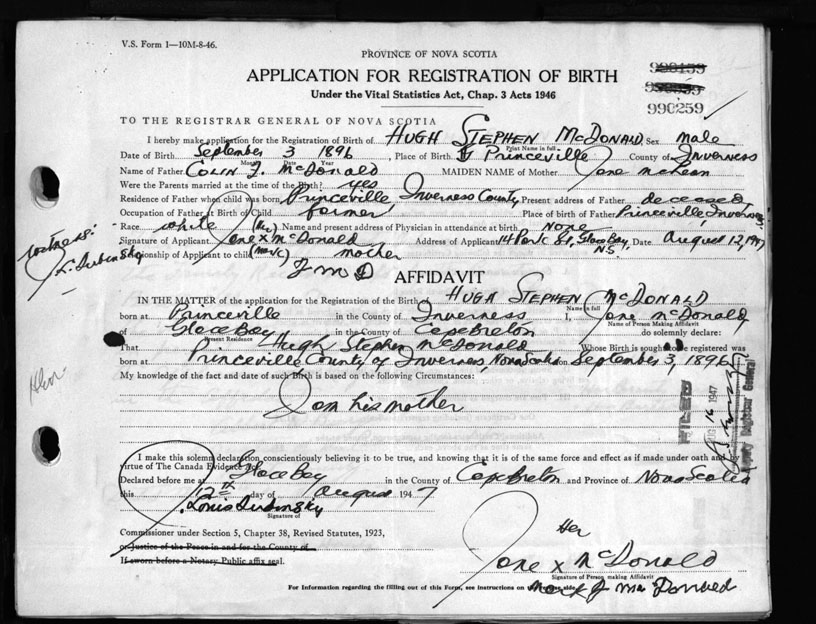 V.S. Form 1—10M-8-46.
PROVINCE OF NOVA SCOTIA
APPLICATION FOR REGISTRATION OF BIRTH
Under the Vital Statistics Act, Chap. 3 Acts 1946
990259
TO THE REGISTRAR GENERAL OF NOVA SCOTIA
I hereby make application for the Registration of Birth of HUGH STEPHEN McDONALD Sex male
Print Name in full
Date of Birth September 3 1896, Place of Birth Princeville County of Inverness
Month Date Year
Name of Father COLIN J. McDonald MAIDEN NAME of Mother Jane McLean
Were the Parents married at time of the Birth? yes
Residence of Father when child was born Princeville Inverness County Present address of Father deceased
Occupation of Father at Birth of Child farmer Place of birth of Father Princeville, Inverness
Race white Name and present address of Physician in attendance at birth None
(Her
Signature of Applicant Jane x McDonald Address of Applicant 14 Park St, Glace Bay, N.S. Date August 12, 1947
Relationship of Applicant to child (mark) mother
J M D
witness:
L. Dubinsky
AFFIDAVIT
IN THE MATTER of the application for the Registration of the Birth of HUGH STEPHEN McDONALD
Name in full
born at Princeville in the County of Inverness I, Jane McDonald
Name of Person Making Affidavit
of Glace Bay in the County of Cape Breton do solemnly declare:
Present Residence
That Hugh Stephen McDonald Whose Birth is sought to be registered was
born at Princeville, County of Inverness, Nova Scotia on September 3, 1896
My knowledge of the fact and date of such Birth is based on the following Circumstances:
I am his mother
FILED
16 1947
Deputy Registrar General
I make this solemn declaration conscientiously believing it to be true, and knowing that it is of the same force and effect as if made under oath and by
virtue of The Canada Evidence
Declared before me at Glace Bay in the County of Cape Breton and Province of Nova Scotia
this 12th day of August 1947
Louis Dubinsky
Signature of
Commissioner under Section 5, Chapter 38, Revised Statutes, 1923,
or Justice of the Peace in and for the County of
If sworn before a Notary Public affix seal.
Her
Jane x McDonald
Signature of Person making Affidavit
mark J McDonald
For Information regarding the filling out of this Form, see instructions on